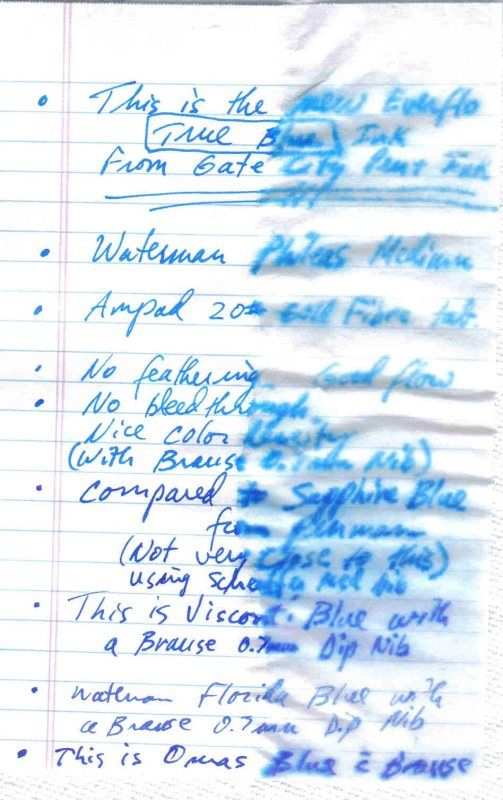 • This is the new Everflo
True Blue Ink
From Gate City Pens Ink
• Waterman Phileas Medium
• Ampad 20# Gold Fibre tab.
• No feathering. Good flow
• No bleedthrough
Nice color density
(with Brause 0.7mm Nib)
• Compared to Sapphire Blue
from Penmann
(Not very close to this)
using med nib
• This is Visconti Blue with
a Brause 0.7mm Dip Nib
• Waterman Florida Blue with
a Brause 0.7mm Dip Nib
• This is Omas Blue c̄ Brause